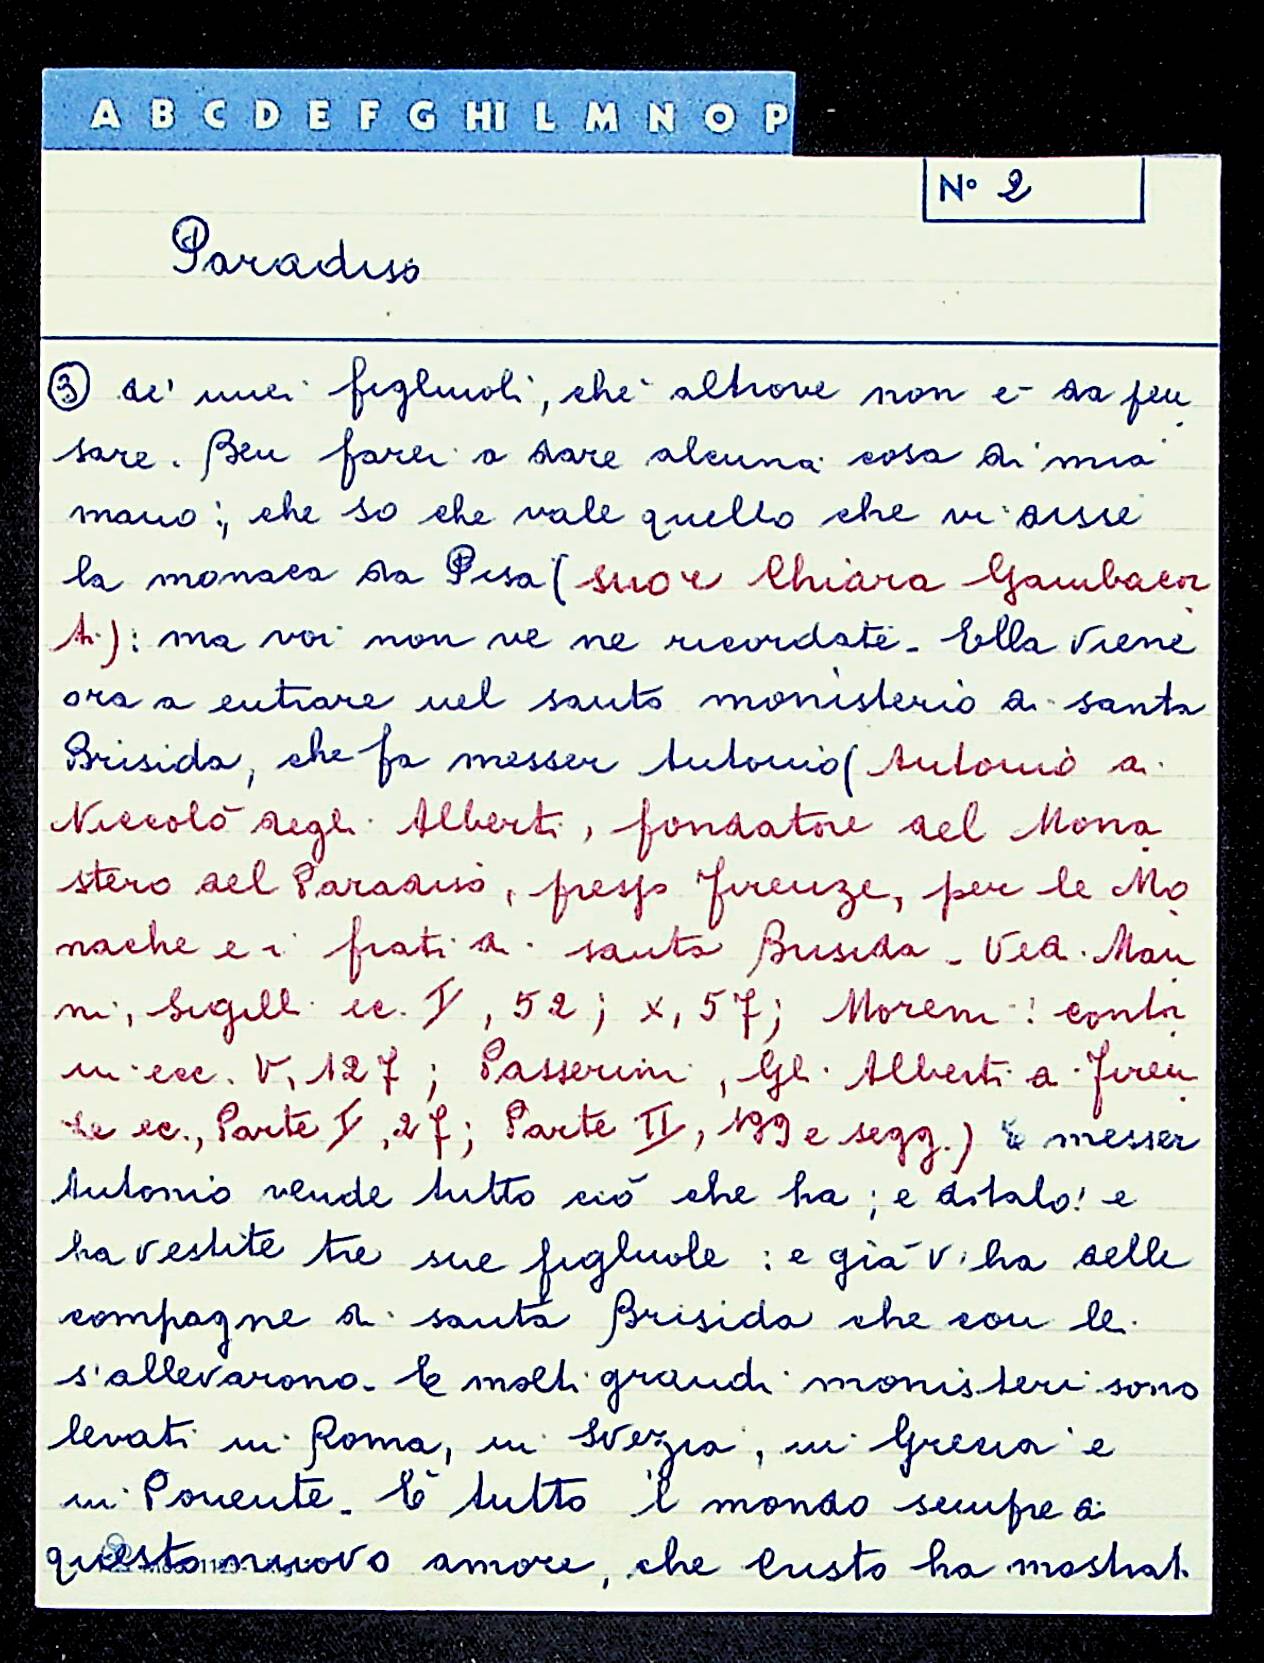 A B C D E F G HI L M N O P
N° 2
Paradiso
③ de' miei figliuoli, chè altrove non è da pen
sare. Ben farei a dare alcuna cosa di mia
mano; che so che vale quello che vi disse
la monaca da Pisa (suor Chiara Gambacor
ti): ma voi non ve ne ricordate. Ella viene
ora a entrare nel santo monisterio di santa
Brisida, che fa messer Antonio (Antonio di
Niccolò degli Alberti, fondatore del Mona
stero del Paradiso, presso Firenze, per le Mo
nache e i frati di santa Brisida. Ved. Man
ni, Sigilli ec. V, 52; X, 57; Moreni: contor
ni ecc. V, 127; Passerini, Gli Alberti di Firen
ze ec., Parte I, 27; Parte II, 199 e segg.) E messer
Antonio vende tutto ciò che ha; e ditalo! e
ha vestite tre sue figliuole: e già v'ha delle
compagne di santa Brisida che con lei
s'allevarono. E molti grandi monisteri sono
levati in Roma, in Svezia, in Grecia e
in Ponente. E tutto il mondo sempre di
questo nuovo amore, che Cristo ha mostrat.